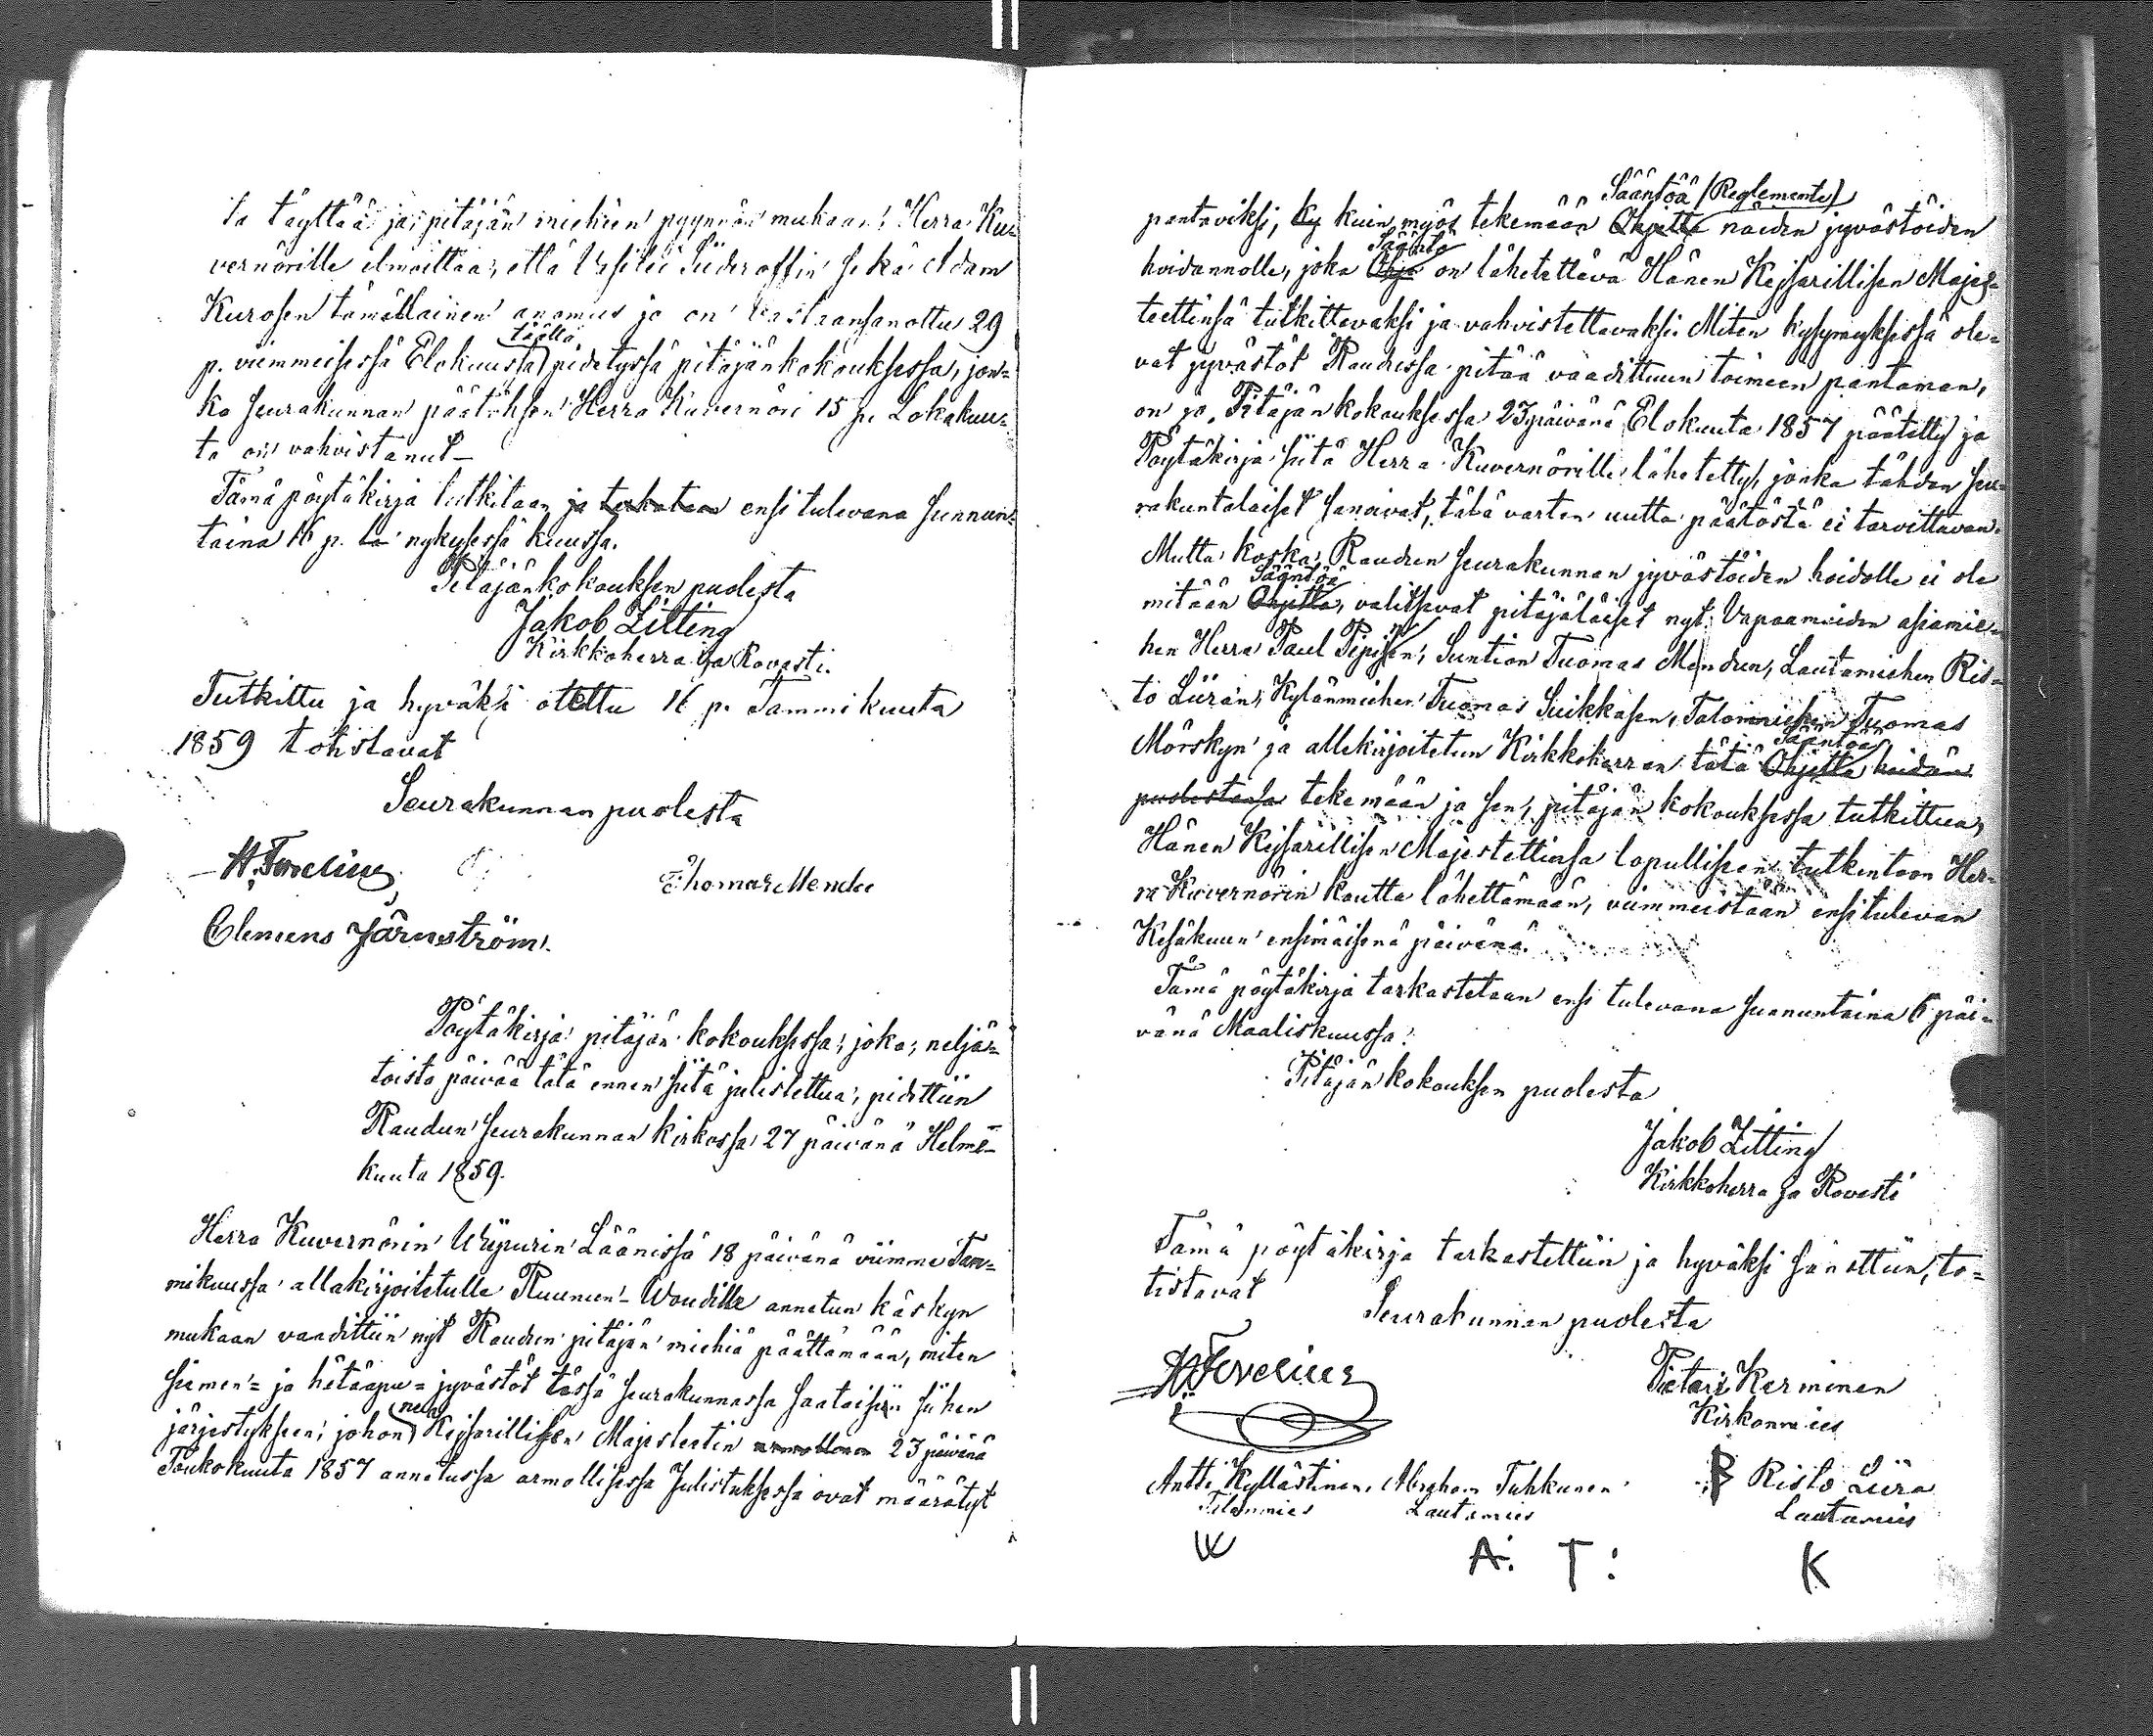 ta täyttää ja, pitäjän miehien pyynnön mukaan, Herra Ku-
vernörille ilmoittaa, että Vasilei Fiideroffin sekä Adam
Kurosen tämällainen anomus jo on vastaansanottu 29
p. viimmeisessä Elokuusta täällä pidetyssä pitäjänkokouksessa, jon-
ka seurakunnan päätöksen Herra Kuvernöri 15 p. Lokakuu-
ta on vahvistanut_
Tämä pöytäkirja tutkitaan ja ensi tulevana sunnun-
taina 16 p. ta nykysessä kuussa.
Pitäjänkokouksen puolesta
Jakob Zitting
Kirkkoherra ja Rovasti.
Tutkittu ja hyväksi otettu 16 p. Tammikuuta
1859 tohstavat
Seurakunnan puolesta
H. Favelius Thomas Mendu
Clemens Järnström.
Pöytäkirja pitäjän kokouksessa, joka, neljä-
toista päivää tätä ennen sitä julistettua, pidettiin
Raudun seurakunnan kirkossa 27 päivänä Helmi-
kuuta 1859.
Herra Kuvernörin Wiipurin Läänissä 18 päivänä viimme Tam-
mikuussa allakirjoitetulle Ruunun-Woudille annetun käskyn
mukaan vaadittiin nyt Raudun pitäjän miehiä päättämään, miten
siemen- ja hätäapu-jyvästöt tässä seurakunnassa saataisiin siihen
järjestykseen, johon ne Kejsarillisen Majesteetin 23 päivänä
Toukokuuta 1857 annetussa armollisessa Julistuksessa ovat määrätyt
Sääntöä (Reglemente)
pantaviksi, ky kuin myös tekemään Ohjetta näiden jyvästöiden
Sääntö
hoidannolle, joka Ohje on lähetettävä Hänen Kejsarillisen Majes-
teettinsä tutkittavaksi ja vahvistettavaksi. Miten kysymyksessä ole-
vat jyvästöt Raudussa pitää vaadittuun toimeen pantaman,
on jo Pitäjänkokouksessa 23 päivänä Elokuuta 1857 päätetty ja
Pöytäkirja siitä Herra Kuvernörille lähetetty, jonka tähden seu-
rakuntalaiset sanoivat, tätä varten uutta päätöstä ei tarvittavan.
Mutta koska Raudun seurakunnan jyvästöiden hoidolle ei ole
Sääntöä
mitään Ohjetta, valitsevat pitäjäläiset nyt Vapaamuiden asiamie-
hen Herra Paul Pipisen, Suntion Tuomas Mendun, Lautamiehen Ris-
to Liiran, Kylänmiehen Tuomas Suikkasen, Talonmiehen Tuomas
Sääntöä
Mörskyn ja allekirjoitetun Kirkkoherran tätä Ohjetta heidän
puolestansa tekemään ja sen, pitäjän kokouksessa tutkittua,
Hänen Kejsarillisen Majestettinsa lopulliseen tutkintoon Her-
ra Kuvernörin kautta lähettämään, viimmeistään ensitulevan
Kesäkuun ensimäisenä päivänä.
Tämä pöytäkirja tarkastetaan ensi tulevana sunnuntaina 6 päi-
vänä Maaliskuussa.
Pitäjän kokouksen puolesta
Jakob Zitting
Kirkkoherra ja Rovasti
Tämä pöytäkirja tarkastettiin ja hyväksi sanottiin, to-
tistavat
Seurakunnan puolesta
H Favelius Pietari Kerminen
Kirkonmies
Antti Kyllästinen, Abraham Tuhkunen Risto Liira
Talonmies Lautamies Lautamies
A: T: K